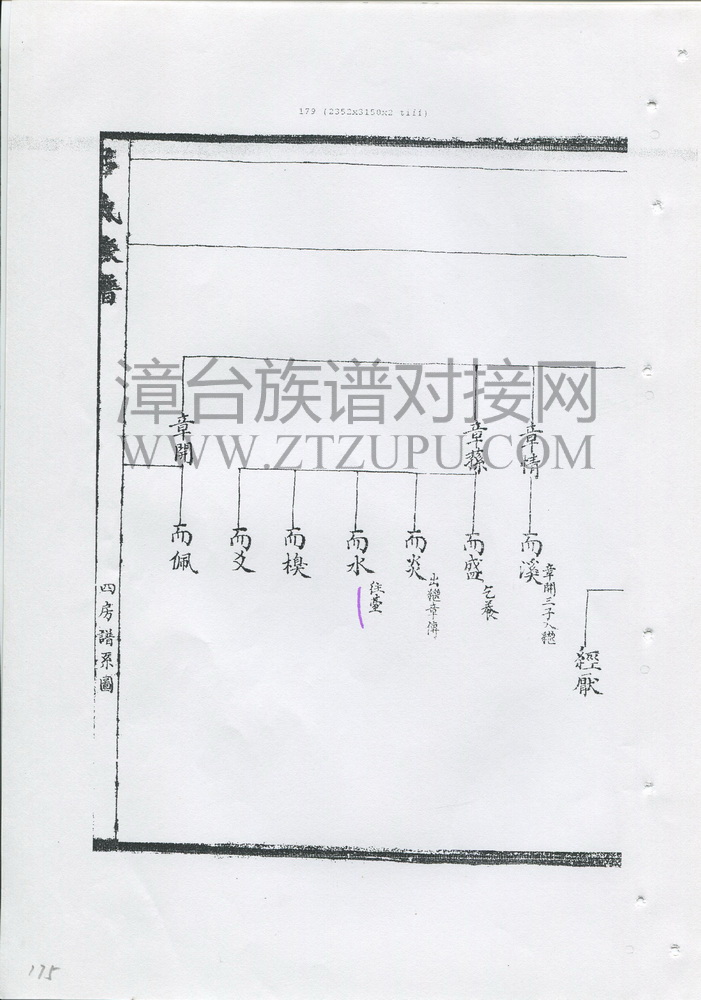 179 (2352x3150x2 tiff)
漳台族谱对接网
WWW.ZTZUPU.COM
章情
章蓀
章開
而溪
章開三子入繼
而盛
乞養
而炎
出繼章傳
而水
往臺
而㮋
而爻
而佩
經厭
氏族譜
四房譜系圖
175